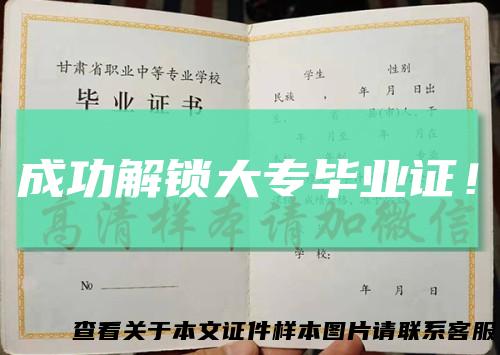 甘肃省职业中等专业学校
毕业证书
No
学生 性别
民族 ， 年 月 日出
生， 省 县(市)人，于
年 月至 年 月在
成功解锁大专毕业证！
高清样本请加微信
学校：
年 月 日
查看关于本文证件样本图片请联系客服